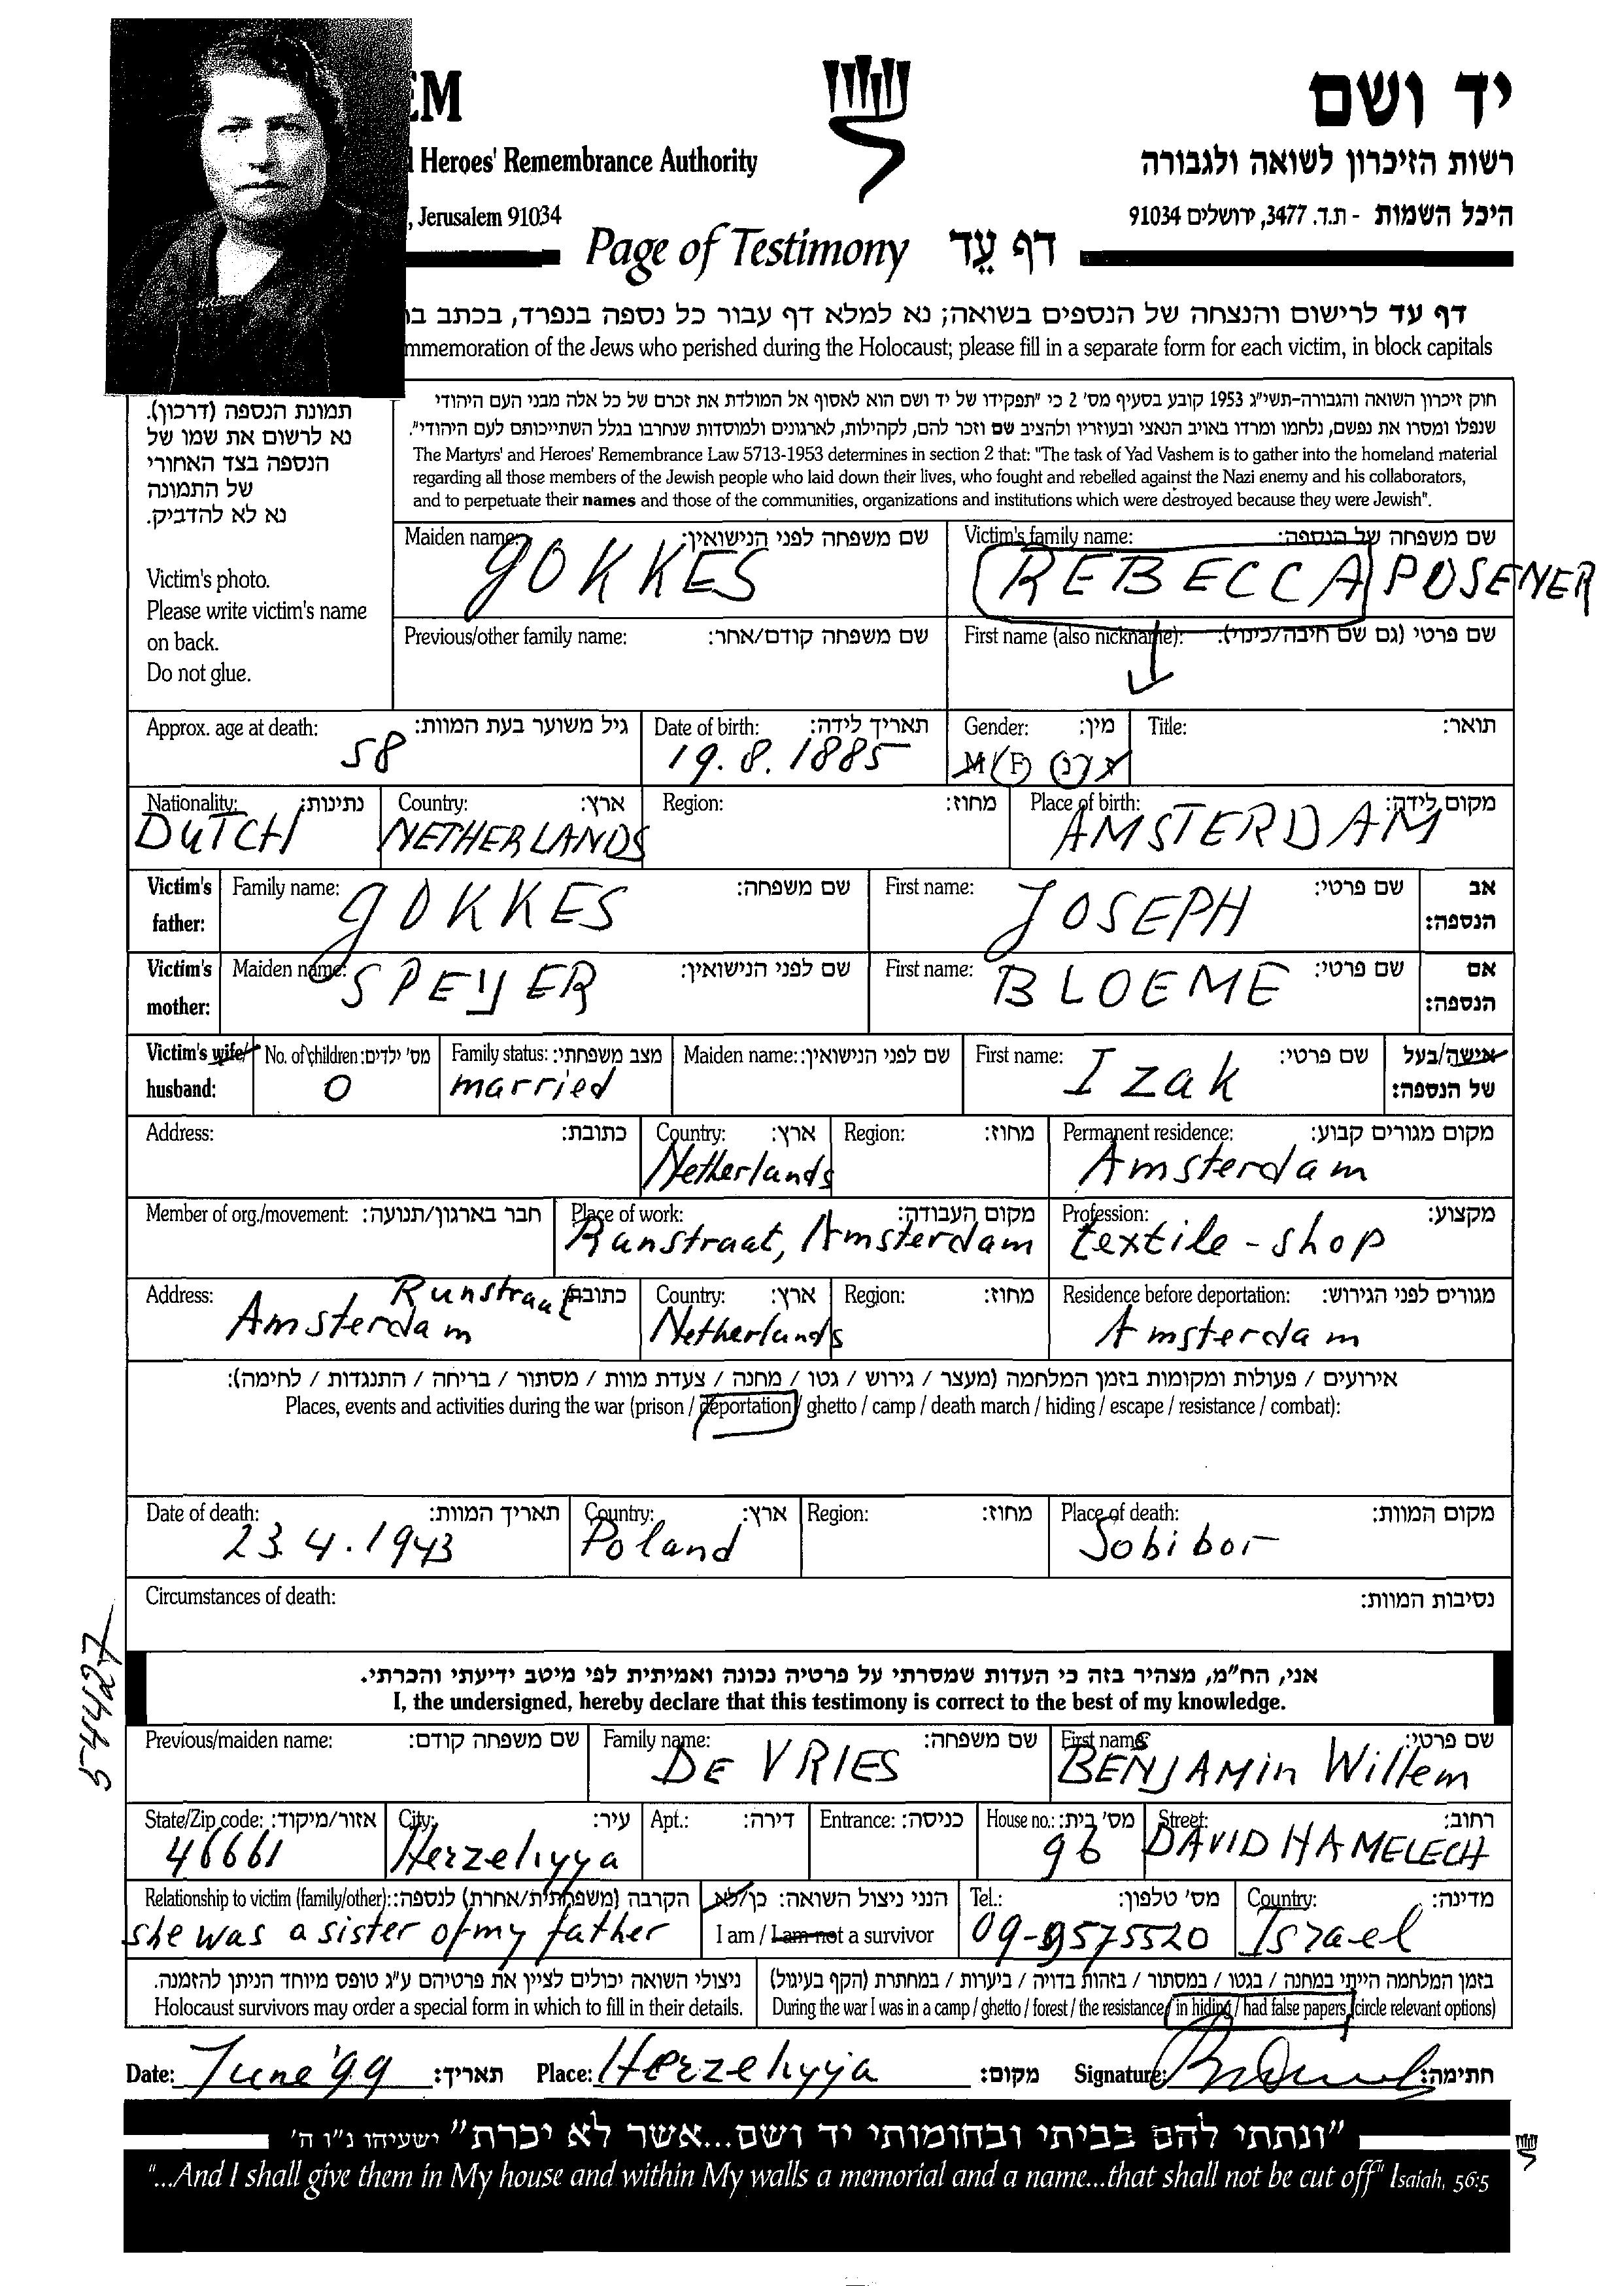 EM
יד ושם
Heroes' Remembrance Authority
רשות הזיכרון לשואה ולגבורה
, Jerusalem 91034
היכל השמות - ת.ד. 3477, ירושלים 91034
Page of Testimony דף עֵד
דף עד לרישום והנצחה של הנספים בשואה; נא למלא דף עבור כל נספה בנפרד, בכתב
mmemoration of the Jews who perished during the Holocaust; please fill in a separate form for each victim, in block capitals
תמונת הנספה (דרכון).
נא לרשום את שמו של
הנספה בצד האחורי
של התמונה
נא לא להדביק.
Victim's photo.
Please write victim's name
on back.
Do not glue.
חוק זיכרון השואה והגבורה-תשי"ג 1953 קובע בסעיף מס' 2 כי "תפקידו של יד ושם הוא לאסוף אל המולדת את זכרם של כל אלה מבני העם היהודי
שנפלו ומסרו את נפשם, נלחמו ומרדו באויב הנאצי ובעוזריו ולהציב שם וזכר להם, לקהילות, לארגונים ולמוסדות שנחרבו בגלל השתייכותם לעם היהודי".
The Martyrs' and Heroes' Remembrance Law 5713-1953 determines in section 2 that: "The task of Yad Vashem is to gather into the homeland material
regarding all those members of the Jewish people who laid down their lives, who fought and rebelled against the Nazi enemy and his collaborators,
and to perpetuate their names and those of the communities, organizations and institutions which were destroyed because they were Jewish".
Maiden name: שם משפחה לפני הנישואין: Victim's family name: שם משפחה של הנספה:
GOKKES REBECCA POSENER
Previous/other family name: שם משפחה קודם/אחר: First name (also nickname): שם פרטי (גם שם חיבה/כינוי):
Approx. age at death: גיל משוער בעת המוות: Date of birth: תאריך לידה: Gender: מין: Title: תואר:
58 19.8.1885 M F ז נ
Nationality: נתינות: Country: ארץ: Region: מחוז: Place of birth: מקום לידה:
DUTCH NETHERLANDS AMSTERDAM
Victim's father: Family name: שם משפחה: First name: שם פרטי: אב הנספה:
GOKKES JOSEPH
Victim's mother: Maiden name: שם לפני הנישואין: First name: שם פרטי: אם הנספה:
SPEIJER BLOEME
Victim's wife/ husband: No. of children: מס' ילדים: Family status: מצב משפחתי: Maiden name: שם לפני הנישואין: First name: שם פרטי: אישה/בעל של הנספה:
0 married Izak
Address: כתובת: Country: ארץ: Region: מחוז: Permanent residence: מקום מגורים קבוע:
Netherlands Amsterdam
Member of org./movement: חבר בארגון/תנועה: Place of work: מקום העבודה: Profession: מקצוע:
Runstraat, Amsterdam textile - shop
Address: כתובת: Country: ארץ: Region: מחוז: Residence before deportation: מגורים לפני הגירוש:
Runstraat Amsterdam Netherlands Amsterdam
אירועים / פעולות ומקומות בזמן המלחמה (מעצר / גירוש / גטו / מחנה / צעדת מוות / מסתור / בריחה / התנגדות / לחימה):
Places, events and activities during the war (prison / deportation / ghetto / camp / death march / hiding / escape / resistance / combat):
Date of death: תאריך המוות: Country: ארץ: Region: מחוז: Place of death: מקום המוות:
23.4.1943 Poland Sobibor
Circumstances of death: נסיבות המוות:
544427
אני, הח"מ, מצהיר בזה כי העדות שמסרתי על פרטיה נכונה ואמיתית לפי מיטב ידיעתי והכרתי.
I, the undersigned, hereby declare that this testimony is correct to the best of my knowledge.
Previous/maiden name: שם משפחה קודם: Family name: שם משפחה: First name: שם פרטי:
DE VRIES BENJAMIN Willem
State/Zip code: אזור/מיקוד: City: עיר: Apt.: דירה: Entrance: כניסה: House no.: מס' בית: Street: רחוב:
46661 Herzeliyya 96 DAVID HAMELECH
Relationship to victim (family/other): הקרבה (משפחתית/אחרת) לנספה: הנני ניצול השואה: כן/לא Tel.: מס' טלפון: Country: מדינה:
she was a sister of my father I am / I am not a survivor 09-9575520 Israel
ניצולי השואה יכולים לציין את פרטיהם ע"ג טופס מיוחד הניתן להזמנה. בזמן המלחמה הייתי במחנה / בגטו / במסתור / בזהות בדויה / ביערות / במחתרת (הקף בעיגול)
Holocaust survivors may order a special form in which to fill in their details. During the war I was in a camp / ghetto / forest / the resistance / in hiding / had false papers (circle relevant options)
Date: June '99 תאריך: Place: Herzeliyya מקום: Signature: חתימה:
"ונתתי להם בביתי ובחומותי יד ושם...אשר לא יכרת" ישעיהו נ"ו ה'
"...And I shall give them in My house and within My walls a memorial and a name...that shall not be cut off" Isaiah, 56:5